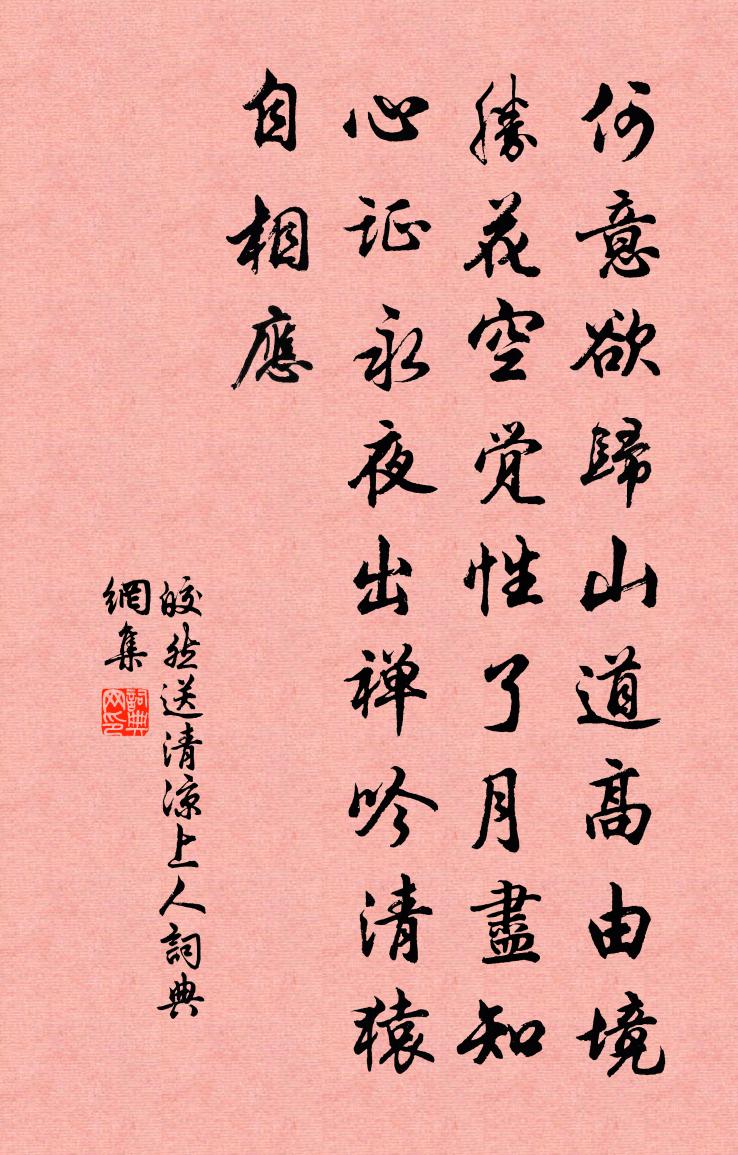 何意欲歸山道高由境
勝花空覚性了月盡知
心证永夜出禅吟清猿
自相應
皎然送清凉上人詞典
網集
詞典網印